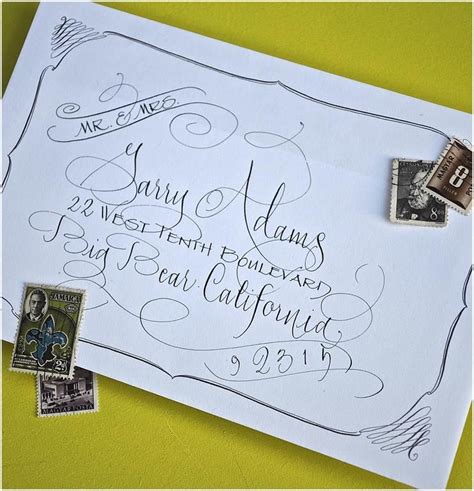 MR. & MRS.
Garry Adams
22 WEST TENTH BOULEVARD
Big Bear, California
92315
MAGYAR
8
8
JAMAICA
2d
MAGYAR POSTA